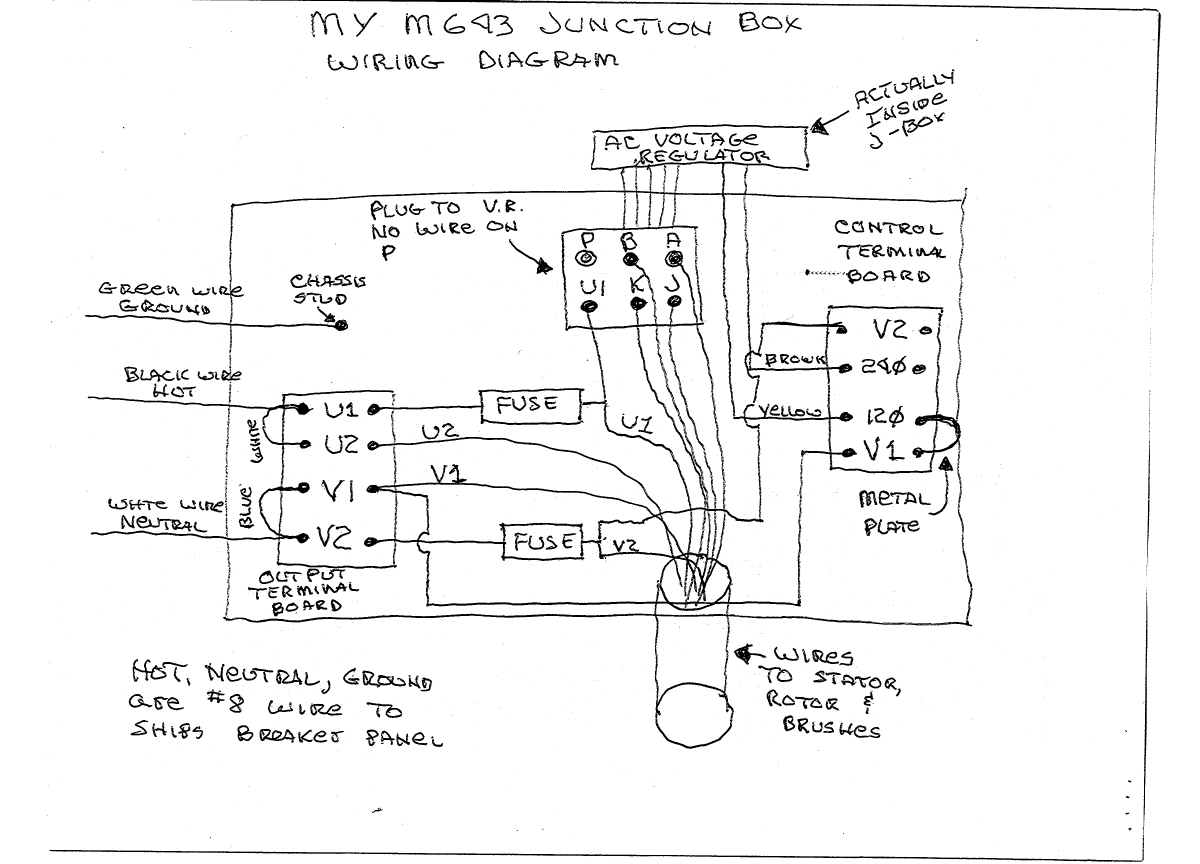 MY M643 JUNCTION BOX
WIRING DIAGRAM
ACTUALLY
INSIDE
J-BOX
AC VOLTAGE
REGULATOR
PLUG TO V.R.
NO WIRE ON
P
P B A
U1 K J
CONTROL
TERMINAL
BOARD
GREEN WIRE
GROUND
CHASSIS
STUD
V2
240
120
V1
BROWN
YELLOW
METAL
PLATE
BLACK WIRE
HOT
WHITE
BLUE
WHTE WIRE
NEUTRAL
U1
U2
V1
V2
FUSE
U1
U2
V1
FUSE
V2
OUTPUT
TERMINAL
BOARD
HOT, NEUTRAL, GROUND
are #8 WIRE TO
SHIPS BREAKER PANEL
WIRES
TO STATOR,
ROTOR &
BRUSHES